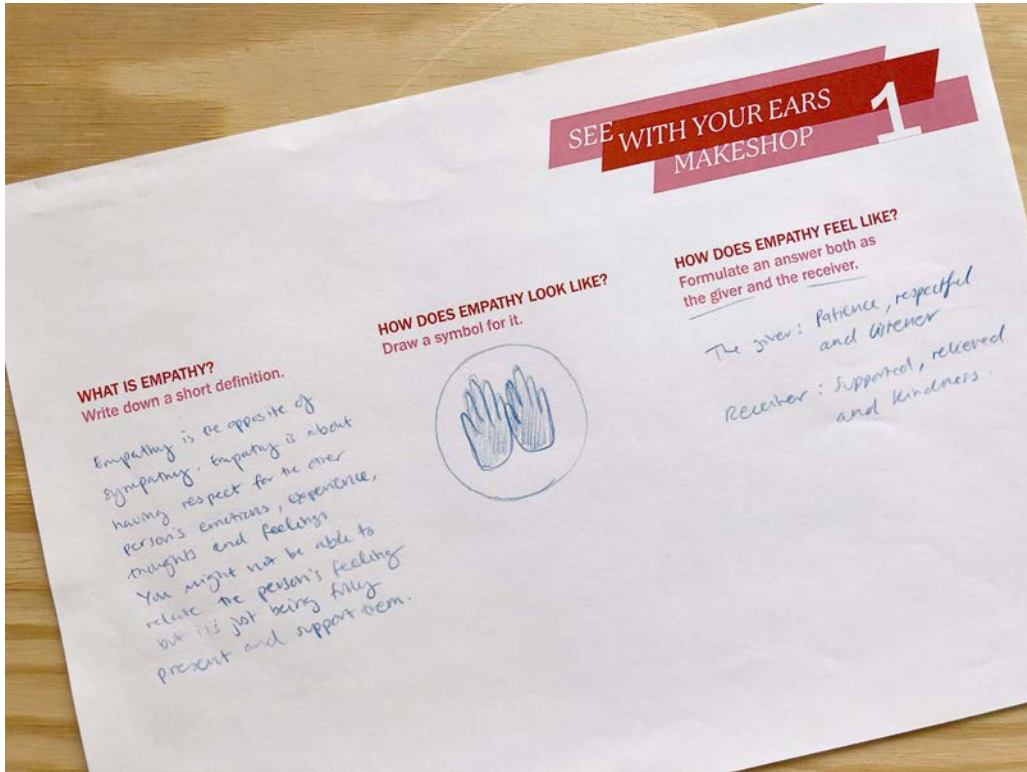 SEE WITH YOUR EARS
MAKESHOP
1
WHAT IS EMPATHY?
Write down a short definition.
Empathy is the opposite of
sympathy. Empathy is about
having respect for the other
person's emotions, experience,
thoughts and feelings
You might not be able to
relate the person's feeling
but it's just being fully
present and support them.
HOW DOES EMPATHY LOOK LIKE?
Draw a symbol for it.
HOW DOES EMPATHY FEEL LIKE?
Formulate an answer both as
the giver and the receiver.
The giver: Patience, respectful
and listener
Receiver: Supported, relieved
and kindness.